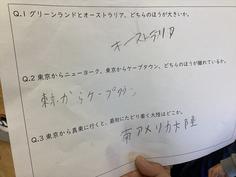 Q.1 グリーンランドとオーストラリア、どちらのほうが大きいか。
オーストラリア
Q.2 東京からニューヨーク、東京からケープタウン、どちらのほうが離れているか。
東京からケープタウン
Q.3 東京から真東に行くと、最初にたどり着く大陸はどこか。
南アメリカ大陸